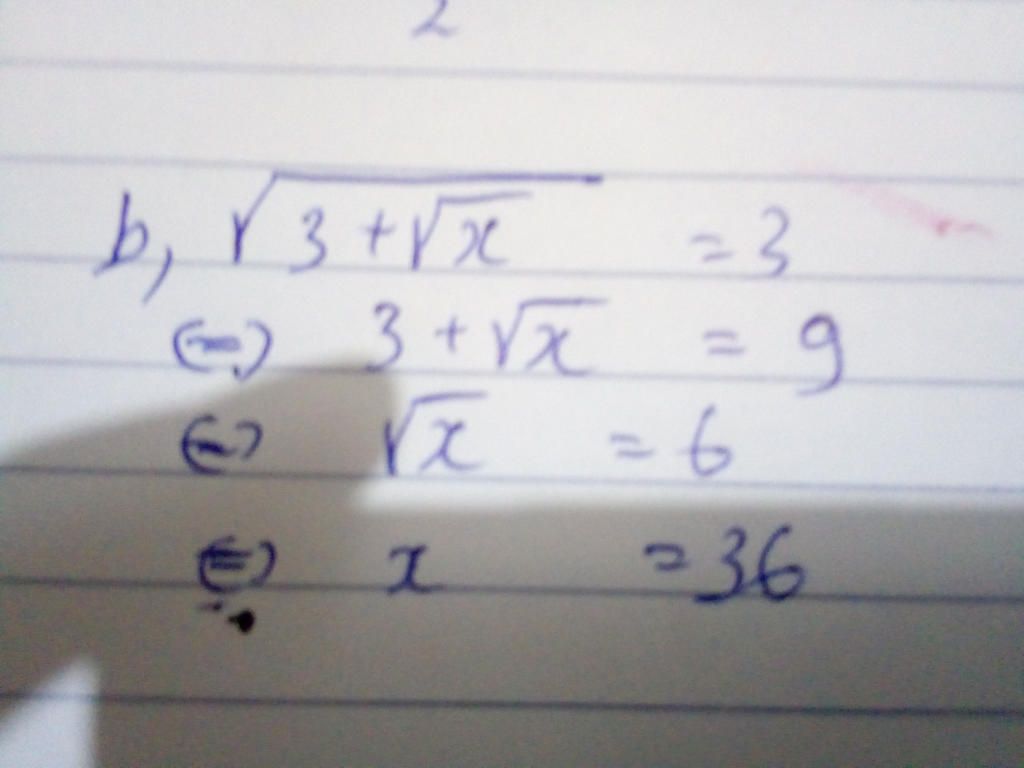 2
b, √(3 + √x) = 3
(=) 3 + √x = 9
(=) √x = 6
(=) x = 36